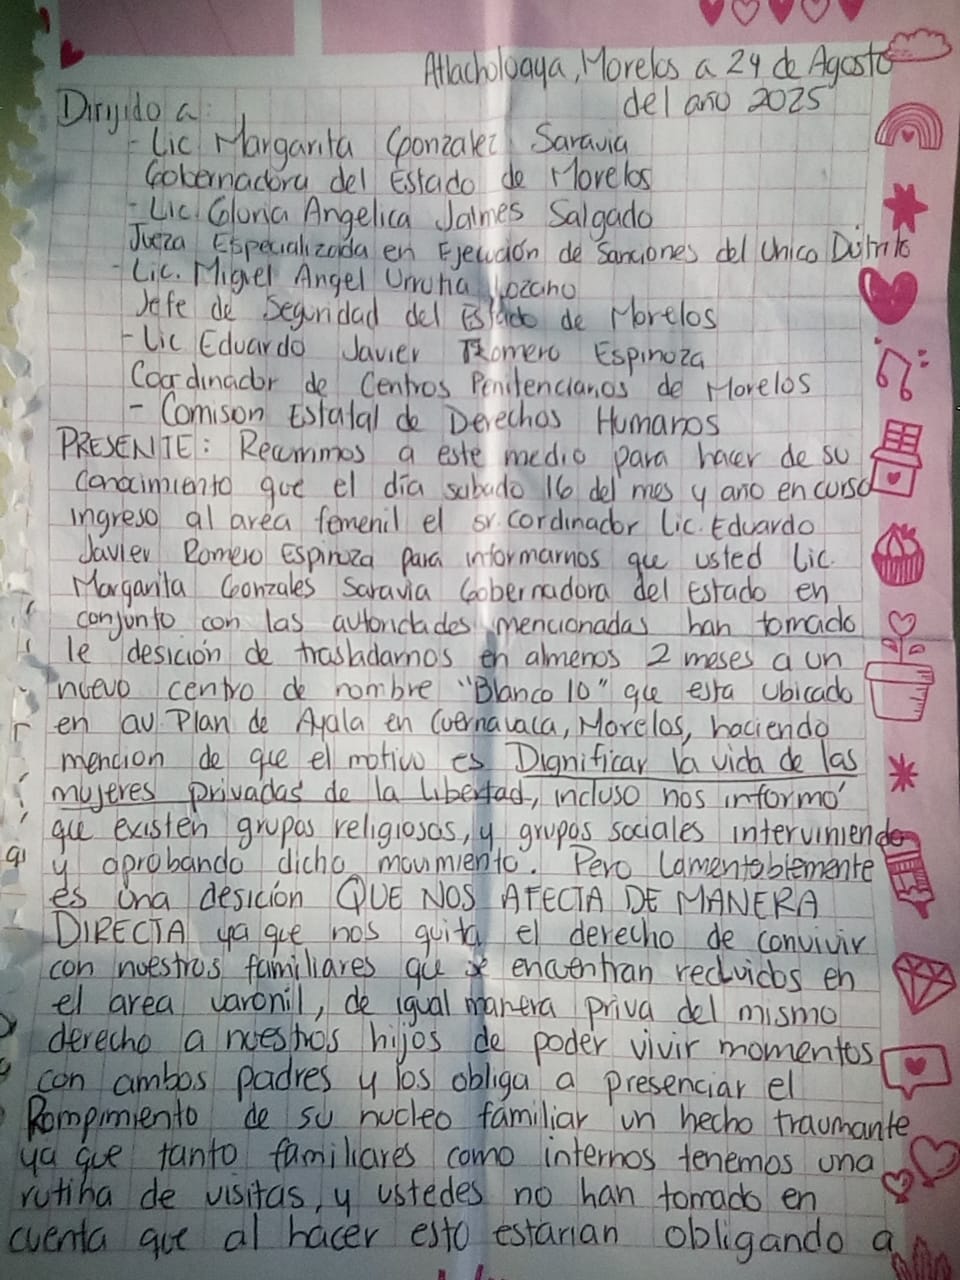 Atlacholoaya, Morelos a 24 de Agosto
del año 2025
Dirijido a:
- Lic Margarita Gonzalez Saravia
Gobernadora del Estado de Morelos
- Lic. Gloria Angelica Jaimes Salgado
Jueza Especializada en Ejecución de Sanciones del Unico Distrito
- Lic. Miguel Angel Urrutia Lozano
Jefe de Seguridad del Estado de Morelos
- Lic Eduardo Javier Romero Espinoza
Coordinador de Centros Penitenciarios de Morelos
- Comison Estatal de Derechos Humanos
PRESENTE: Recurrimos a este medio para hacer de su
conocimiento que el día sabado 16 del mes y año en curso
ingreso al area femenil el sr. cordinador Lic. Eduardo
Javier Romero Espinoza para informarnos que usted Lic.
Margarita Gonzales Saravia Gobernadora del Estado en
conjunto con las autoridades mencionadas han tomado
le desición de trasladarnos en almenos 2 meses a un
nuevo centro de nombre "Blanco 10" que esta ubicado
en av. Plan de Ayala en Cuernavaca, Morelos, haciendo
mencion de que el motivo es Dignificar la vida de las
mujeres privadas de la libertad, incluso nos informó
que existen grupos religiosos, y grupos sociales interviniendo
y aprobando dicho movimiento. Pero lamentablemente
es una desición QUE NOS AFECTA DE MANERA
DIRECTA ya que nos quita el derecho de convivir
con nuestros familiares que se encuentran recluidos en
el area varonil, de igual manera priva del mismo
derecho a nuestros hijos de poder vivir momentos
con ambos padres y los obliga a presenciar el
Rompimiento de su nucleo familiar un hecho traumante
ya que tanto familiares como internos tenemos una
rutina de visitas, y ustedes no han tomado en
cuenta que al hacer esto estarian obligando a